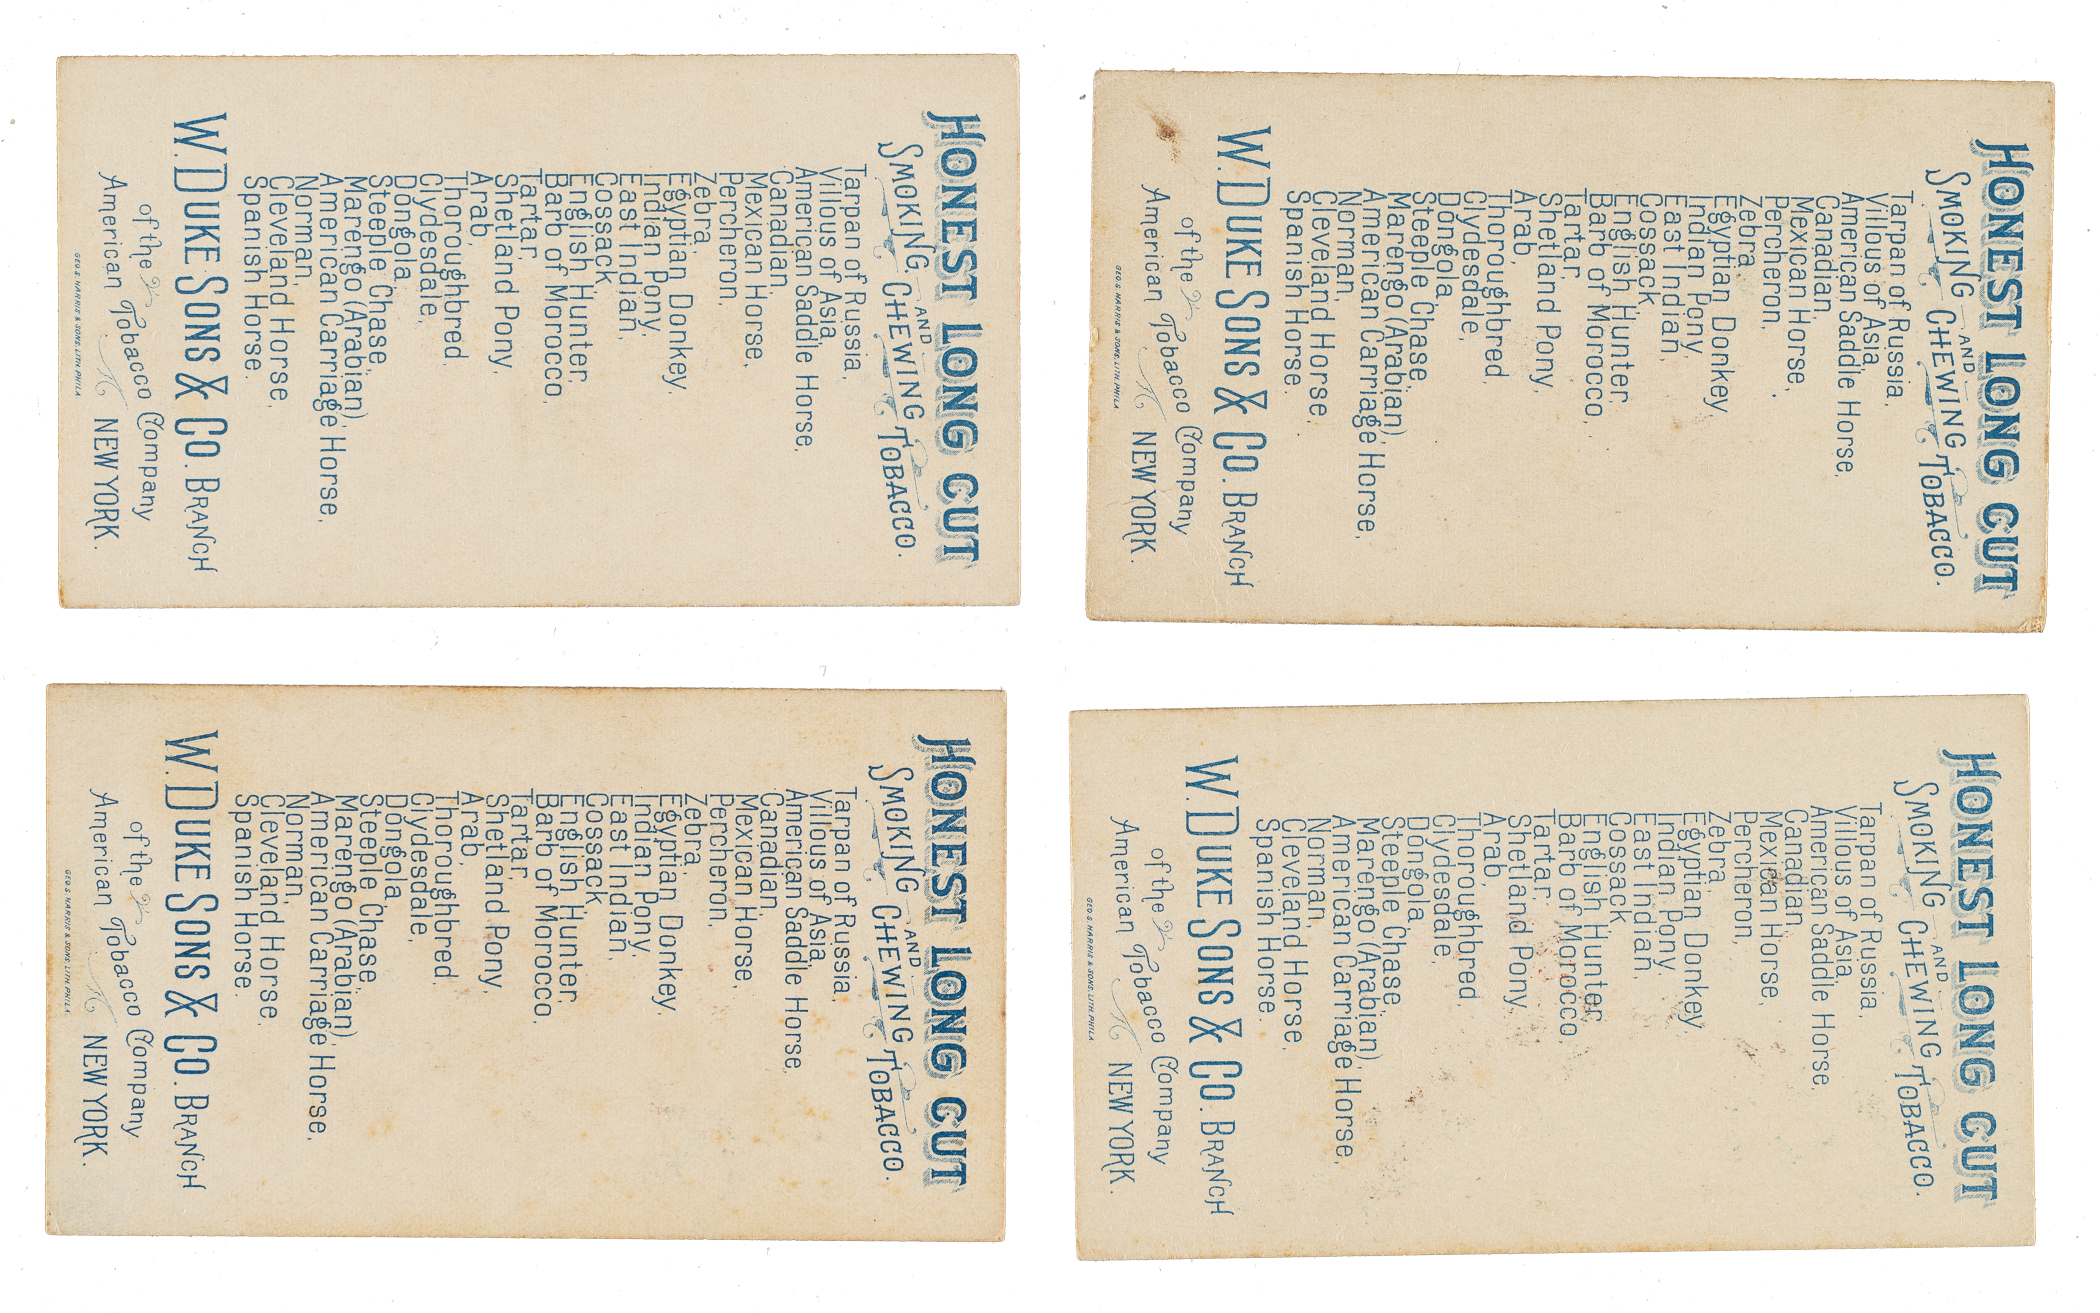 HONEST LONG CUT
SMOKING AND CHEWING TOBACCO.
Tarpan of Russia,
Villous of Asia,
American Saddle Horse,
Canadian,
Mexican Horse,
Percheron,
Zebra,
Egyptian Donkey,
Indian Pony,
East Indian,
Cossack,
English Hunter,
Barb of Morocco,
Tartar,
Shetland Pony,
Arab,
Thoroughbred,
Clydesdale,
Dongola,
Steeple Chase,
Marengo (Arabian),
American Carriage Horse,
Norman,
Cleveland Horse,
Spanish Horse.
W. DUKE SONS & CO. BRANCH
of the
American Tobacco Company
NEW YORK.
GEO. S. HARRIS & SONS. LITH. PHILA.
HONEST LONG CUT
SMOKING AND CHEWING TOBACCO.
Tarpan of Russia,
Villous of Asia,
American Saddle Horse,
Canadian,
Mexican Horse,
Percheron,
Zebra,
Egyptian Donkey,
Indian Pony,
East Indian,
Cossack,
English Hunter,
Barb of Morocco,
Tartar,
Shetland Pony,
Arab,
Thoroughbred,
Clydesdale,
Dongola,
Steeple Chase,
Marengo (Arabian),
American Carriage Horse,
Norman,
Cleveland Horse,
Spanish Horse.
W. DUKE SONS & CO. BRANCH
of the
American Tobacco Company
NEW YORK.
GEO. S. HARRIS & SONS. LITH. PHILA.
HONEST LONG CUT
SMOKING AND CHEWING TOBACCO.
Tarpan of Russia,
Villous of Asia,
American Saddle Horse,
Canadian,
Mexican Horse,
Percheron,
Zebra,
Egyptian Donkey,
Indian Pony,
East Indian,
Cossack,
English Hunter,
Barb of Morocco,
Tartar,
Shetland Pony,
Arab,
Thoroughbred,
Clydesdale,
Dongola,
Steeple Chase,
Marengo (Arabian),
American Carriage Horse,
Norman,
Cleveland Horse,
Spanish Horse.
W. DUKE SONS & CO. BRANCH
of the
American Tobacco Company
NEW YORK.
GEO. S. HARRIS & SONS. LITH. PHILA.
HONEST LONG CUT
SMOKING AND CHEWING TOBACCO.
Tarpan of Russia,
Villous of Asia,
American Saddle Horse,
Canadian,
Mexican Horse,
Percheron,
Zebra,
Egyptian Donkey,
Indian Pony,
East Indian,
Cossack,
English Hunter,
Barb of Morocco,
Tartar,
Shetland Pony,
Arab,
Thoroughbred,
Clydesdale,
Dongola,
Steeple Chase,
Marengo (Arabian),
American Carriage Horse,
Norman,
Cleveland Horse,
Spanish Horse.
W. DUKE SONS & CO. BRANCH
of the
American Tobacco Company
NEW YORK.
GEO. S. HARRIS & SONS. LITH. PHILA.